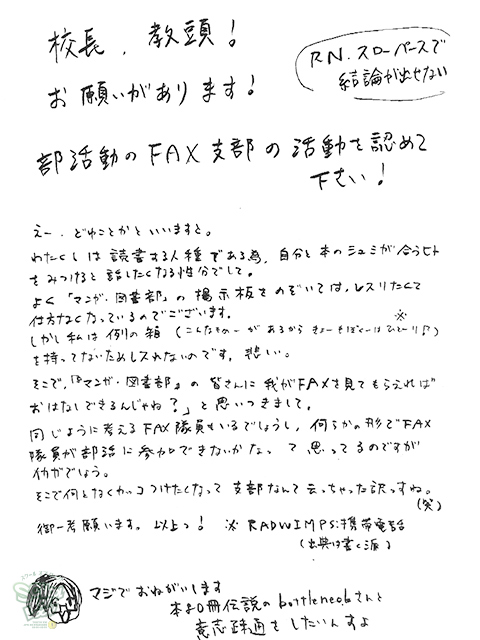 校長、教頭!
お願いがあります!
RN.スローペースで
結論が出せない
部活動のFAX支部の活動を認めて
下さい!
えー、どゆことかといいますと。
わたくしは読書する人種である為、自分と本のシュミが合うヒト
をみつけると話したくなる性分でして。
よく「マンガ・図書部」の掲示板をのぞいては、レスりたくて
仕方なくなっているのでございます。
しかし私は例の箱(こんなものーがあるからきょーもぼくーはひとーり♪)※
を持ってないためレスれないのです。悲しい。
そこで、『「マンガ・図書部」の皆さんに我がFAXを見てもらえれば
おはなしできるんじゃね?』と思いつきまして。
同じように考えるFAX隊員もいるでしょうし、何らかの形でFAX
隊員が部活に参加できないかなって思ってるのですが
イカガでしょう。
そこで何となくカッコつけたくなって支部なんて云っちゃった訳っすね。
(笑)
御一考願います。以上っ! ※RADWIMPS:携帯電話
(出典は書く派)
マジでおねがいします
本80冊伝説のbottleneobさんと
意志疎通をしたいんすよ